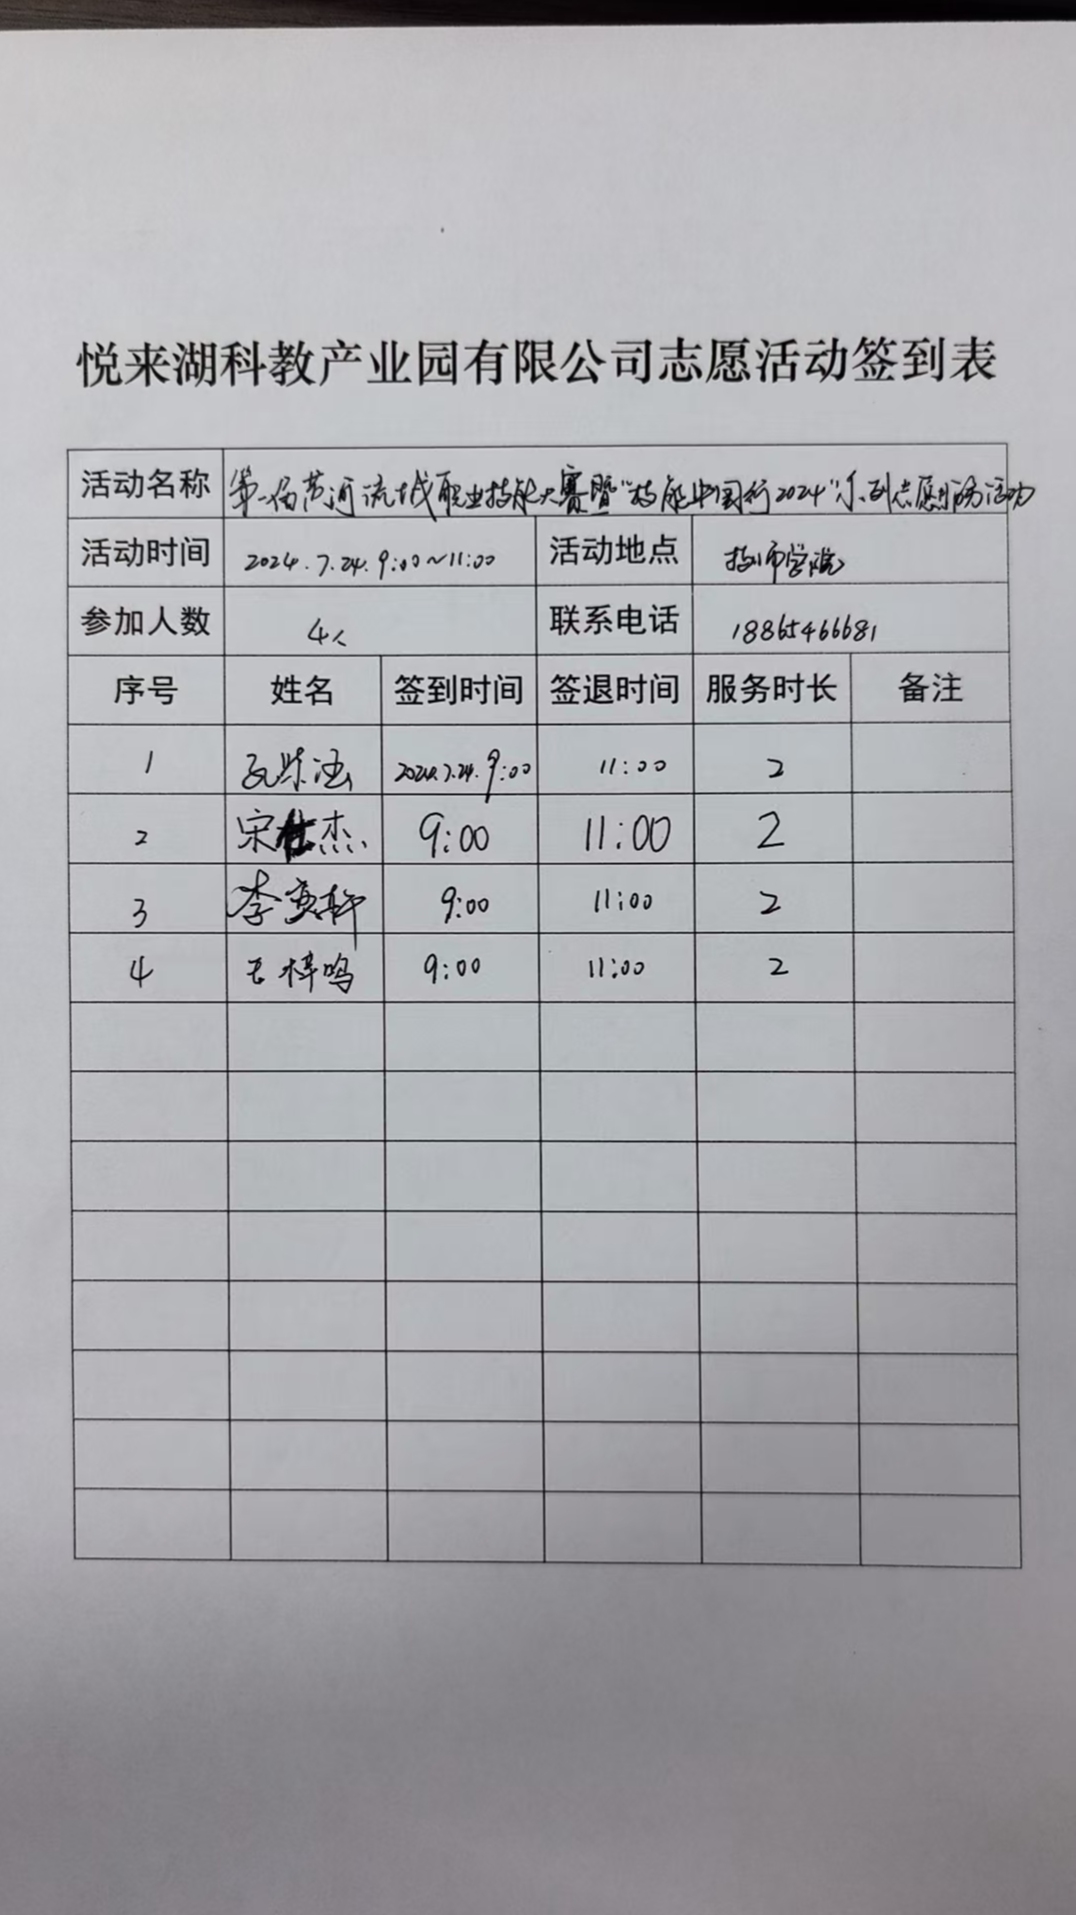 悦来湖科教产业园有限公司志愿活动签到表
活动名称 第一届黄河流域职业技能大赛暨"技能中国行2024"系列志愿服务活动
活动时间 2024.7.24.9:00~11:00 活动地点 技师学院
参加人数 4人 联系电话 18865466681
序号 姓名 签到时间 签退时间 服务时长 备注
1 2024.7.24.9:00 11:00 2
2 宋杰 9:00 11:00 2
3 李 轩 9:00 11:00 2
4 王梓鸣 9:00 11:00 2